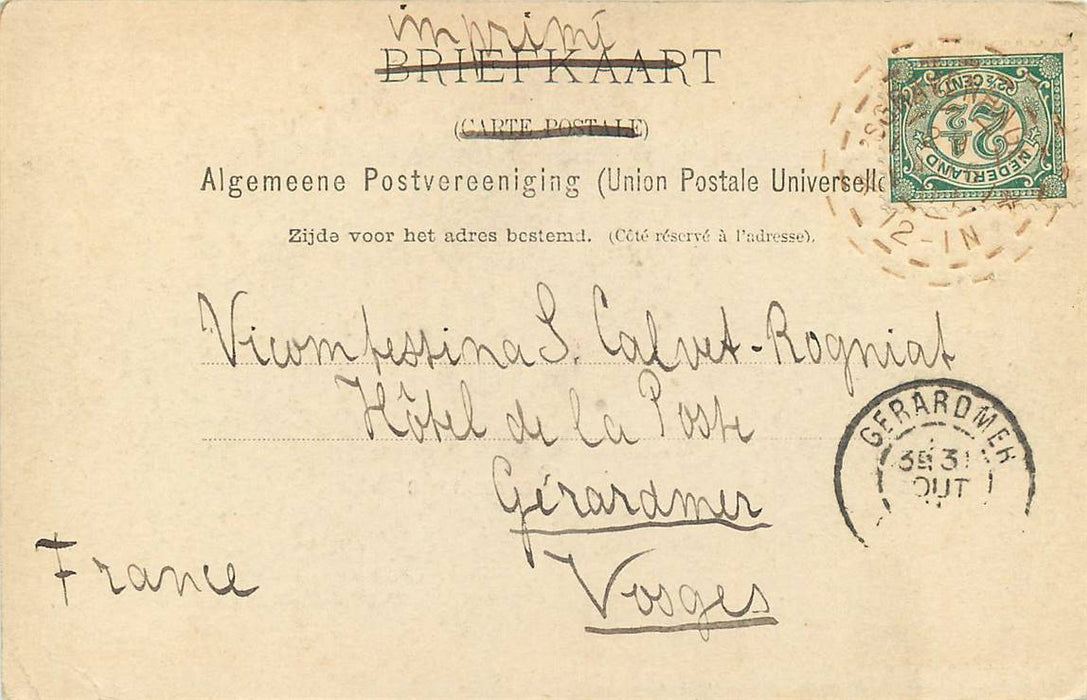 imprimé
BRIEFKAART
(CARTE POSTALE)
Algemeene Postvereeniging (Union Postale Universelle
Zijde voor het adres bestemd. (Côté réservé à l'adresse).
2½ CENT
2½
NEDERLAND
12-1N
Vicomtessina S. Calvet-Rogniat
Hôtel de la Poste
Gérardmer
Vosges
France
GERARDMER
31
OUT